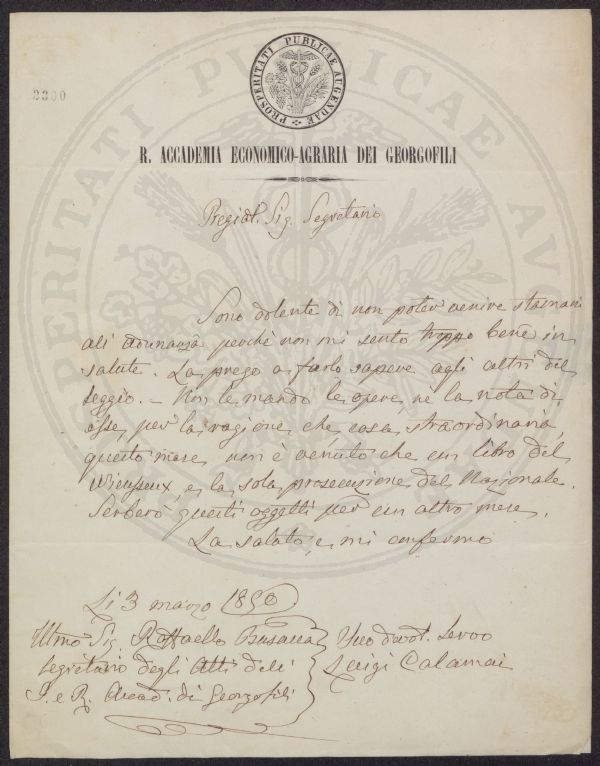 2300
PROSPERITATI PUBLICAE AUGENDAE
R. ACCADEMIA ECONOMICO-AGRARIA DEI GEORGOFILI
Pregiat. Sig. Segretario
Sono dolente di non poter venire stamani
all' adunanza perchè non mi sento troppo bene in
salute. La prego a farlo sapere agli altri del
seggio. — Non le mando le opere, nè la nota di
esse, per la ragione, che, cosa straordinaria,
questo mese, non è venuto che un libro del
Vieusseux, e la sola prosecuzione del Nazionale.
Serberò questi oggetti per un altro mese.
La saluto, e mi confermo
Li 3 marzo 1850
Illmo Sig. Raffaello Busacca
Segretario degli Atti dell'
I. e R. Accad. di Georgofili
Suo devot. servo
Luigi Calamai